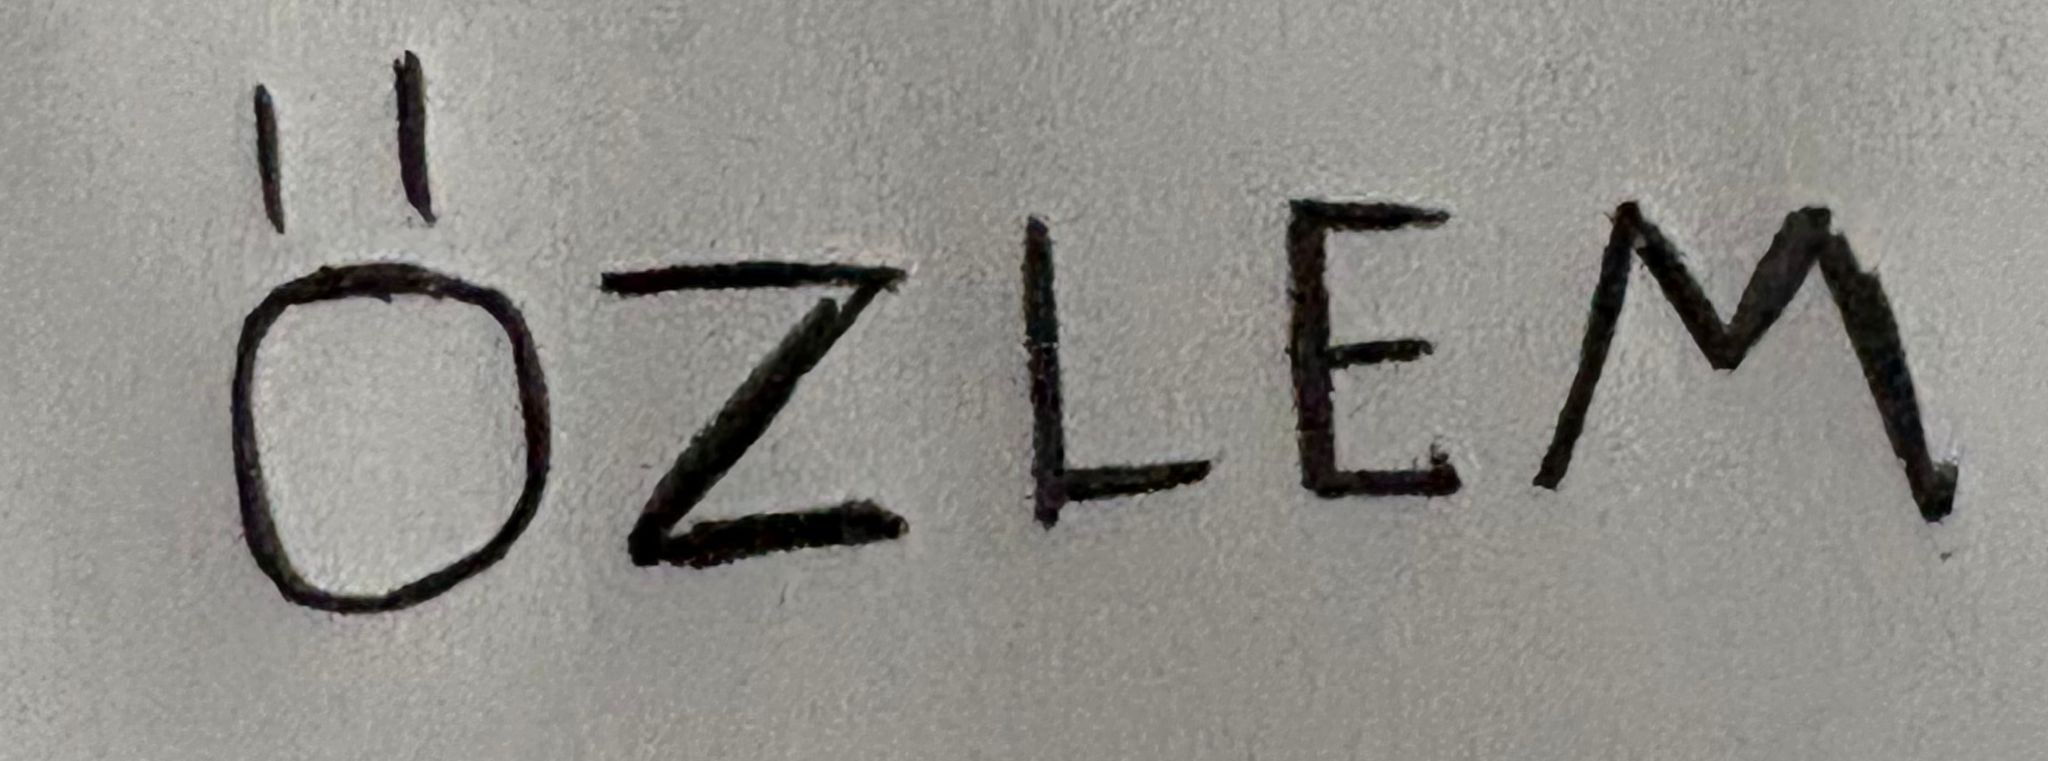 ÖZLEM